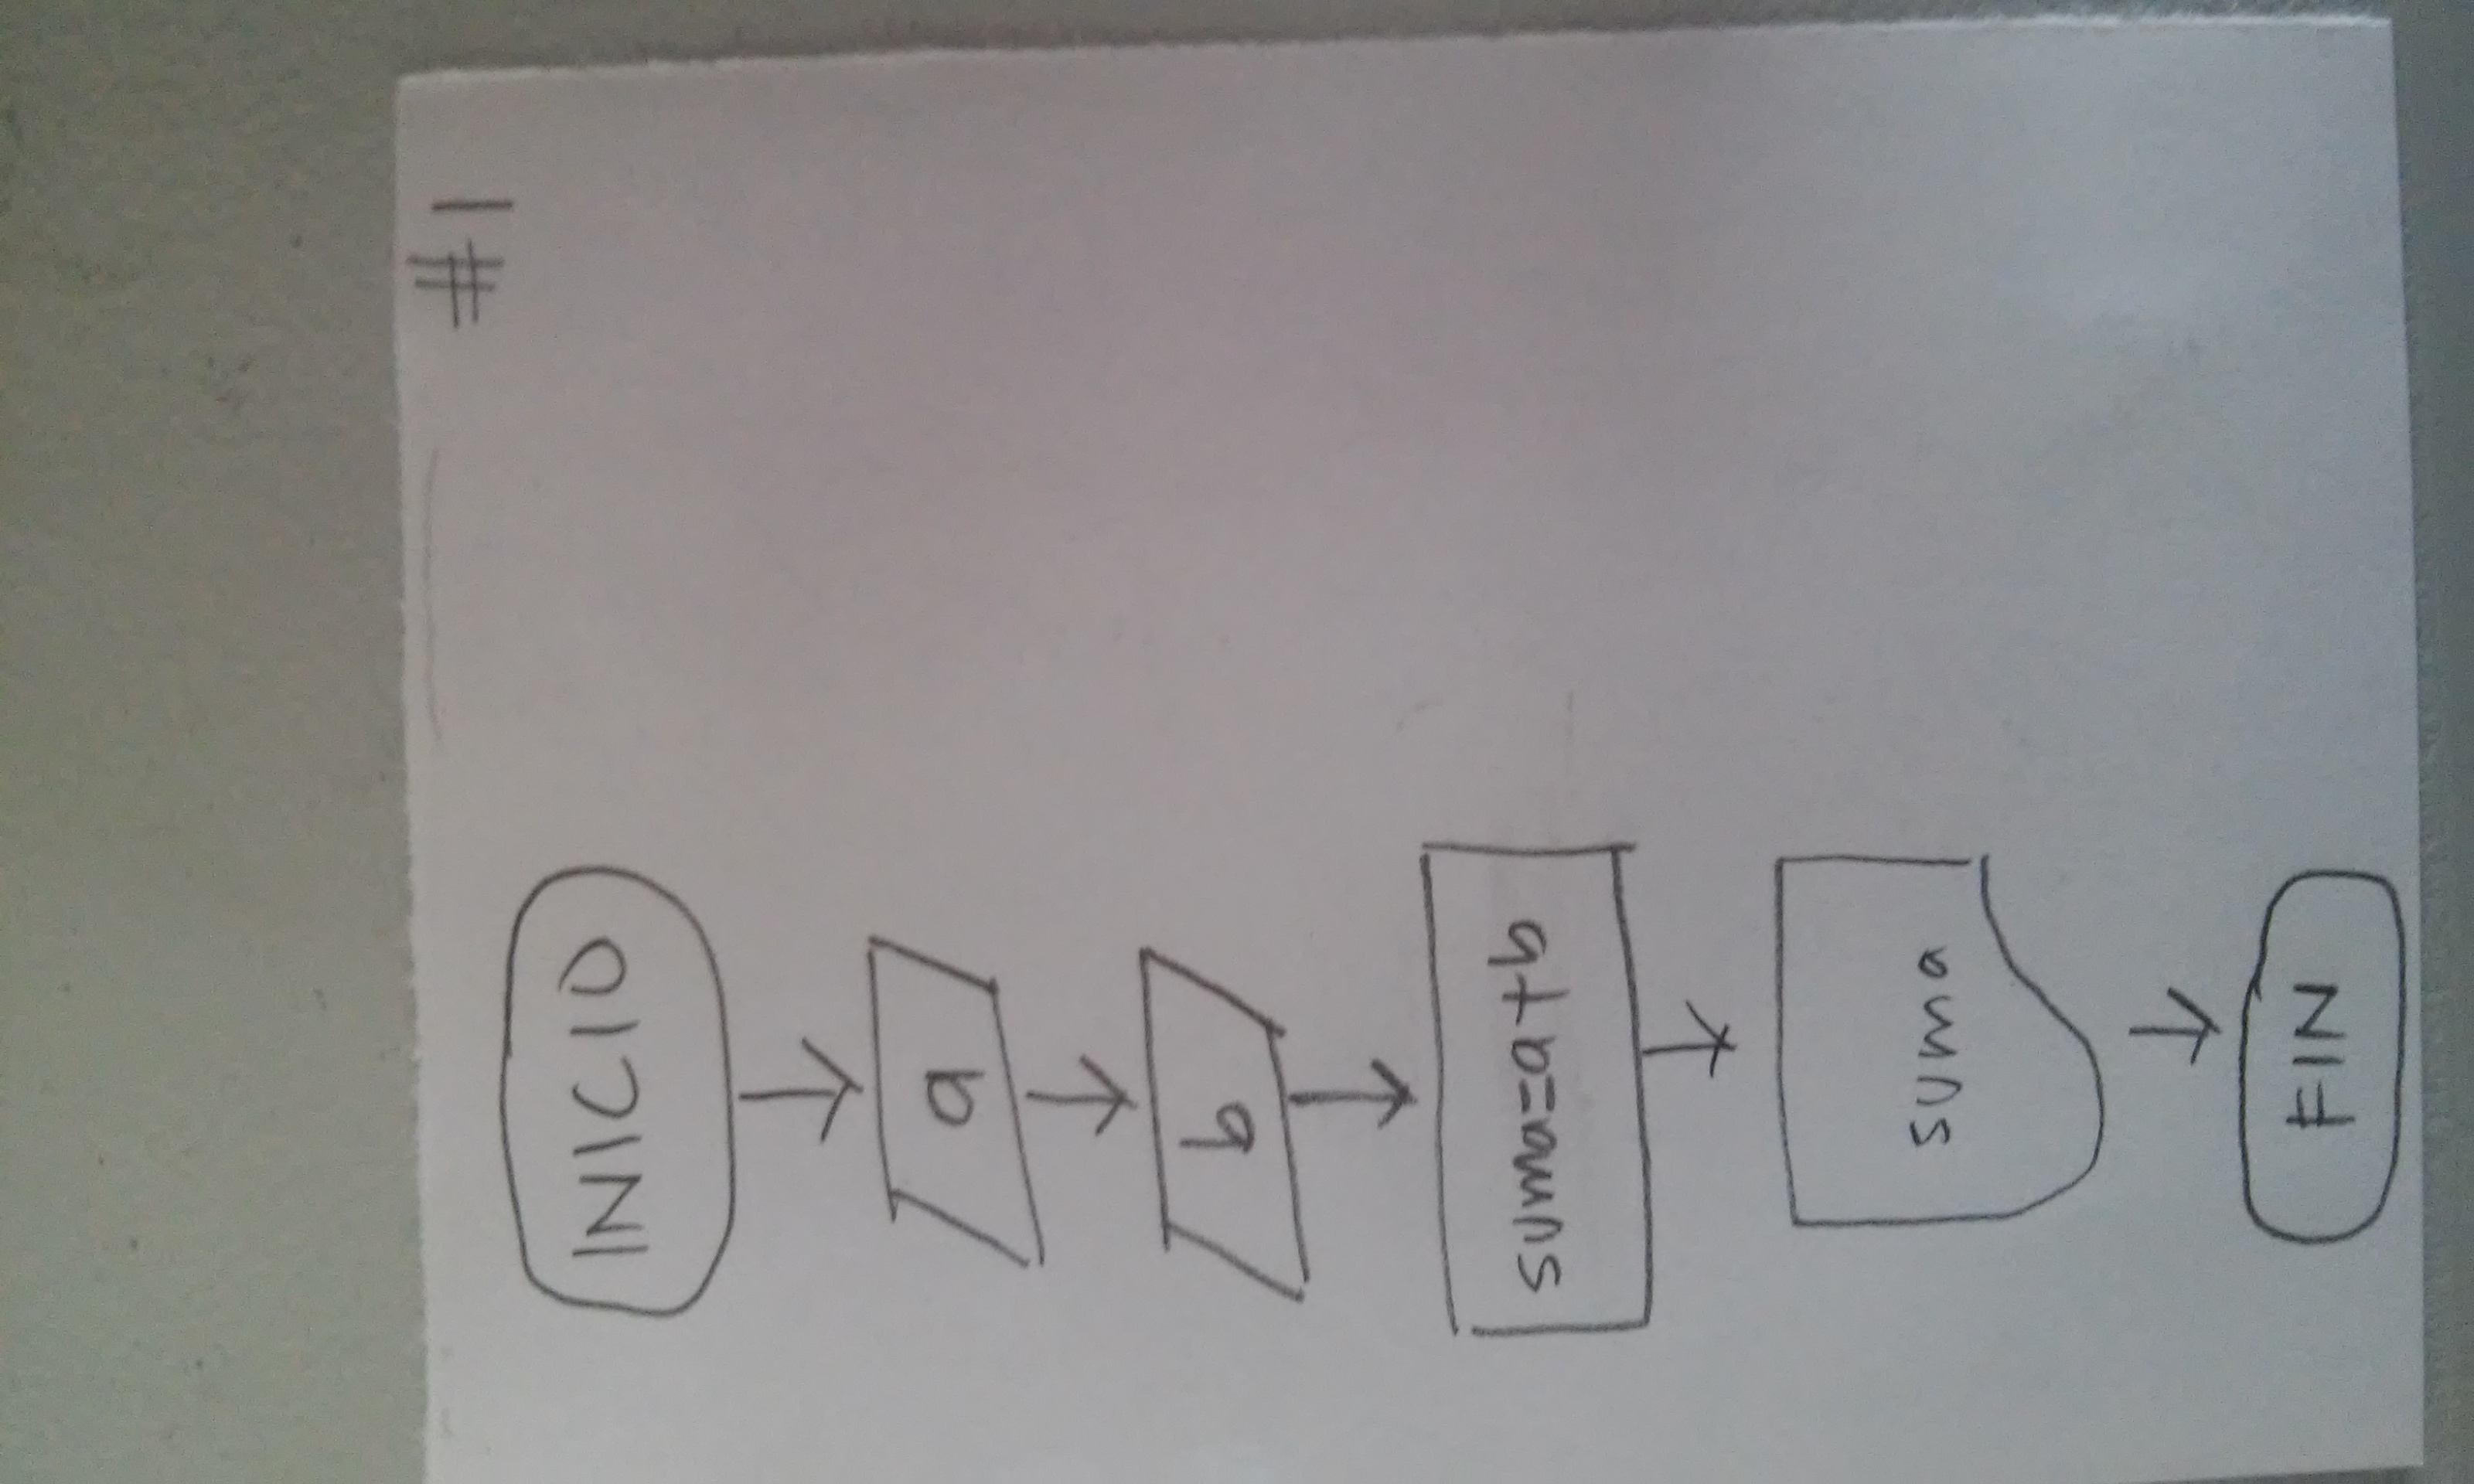 #1
INICIO
a
b
suma=a+b
suma
FIN